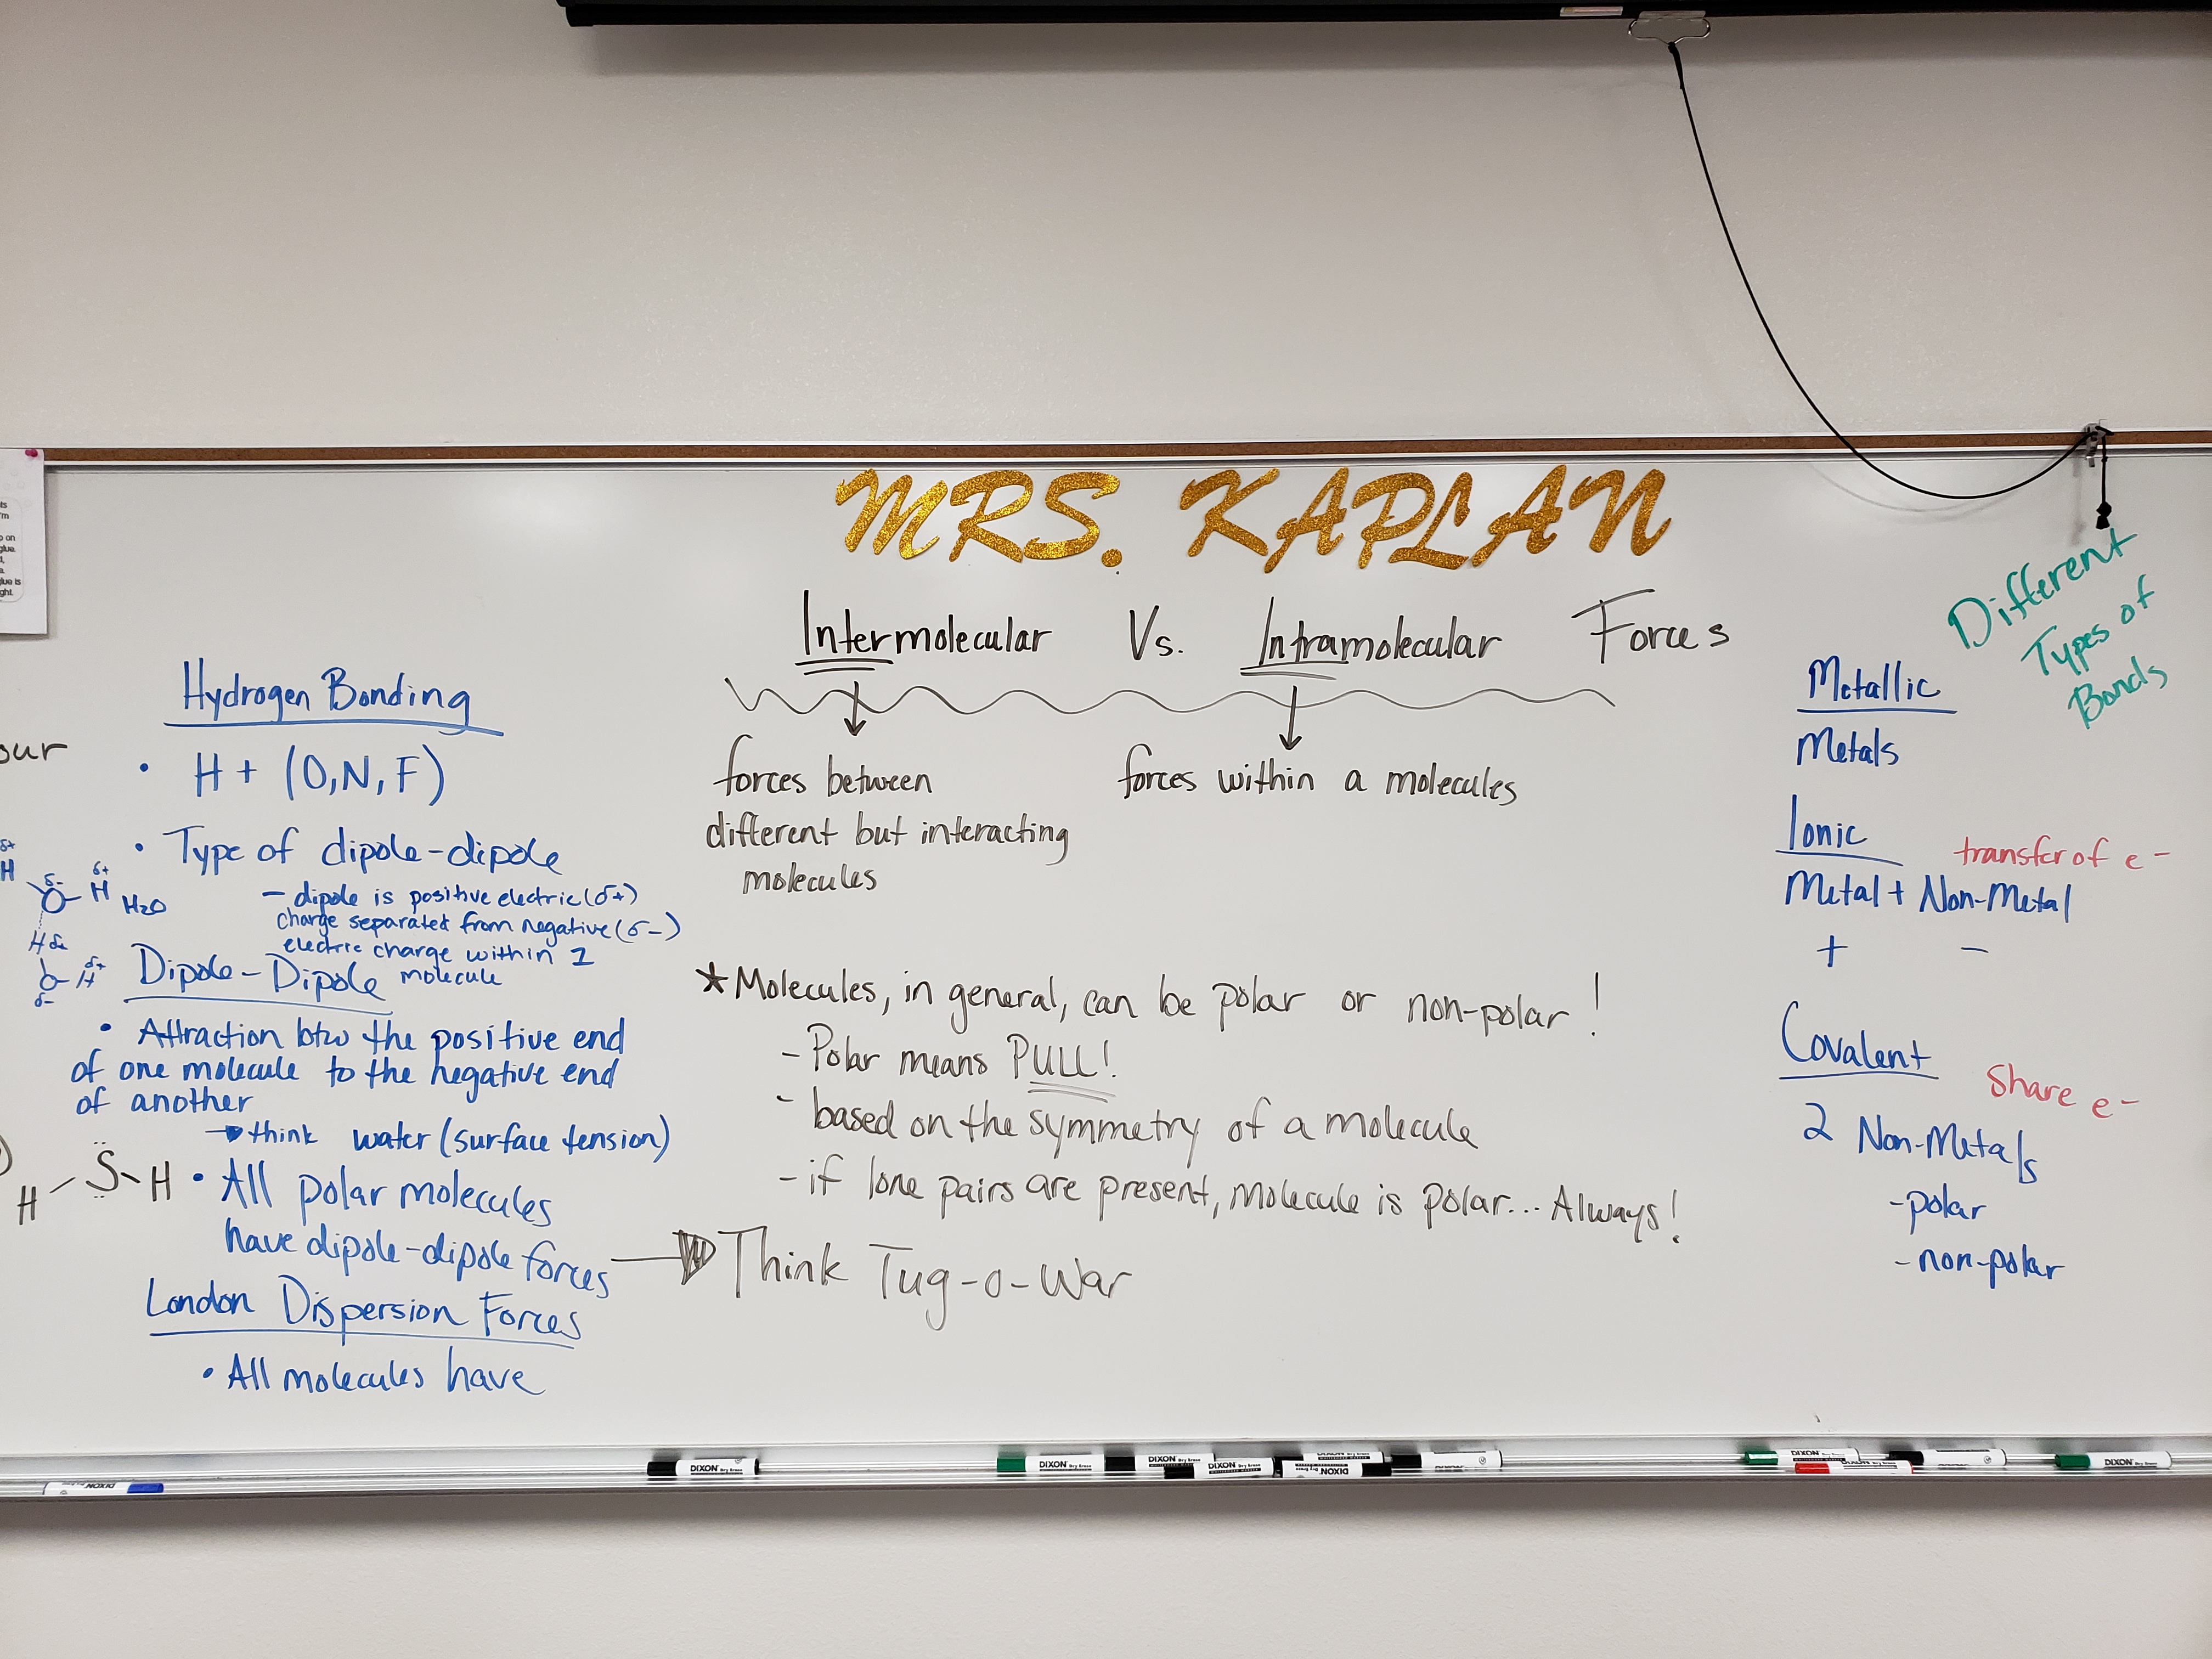 MRS. KAPLAN
Intermolecular Vs. Intramolecular Forces
forces between
different but interacting
molecules
forces within a molecules
*Molecules, in general, can be polar or non-polar!
- Polar means PULL!
- based on the symmetry of a molecule
- if lone pairs are present, molecule is polar... Always!
Think Tug-o-War
Hydrogen Bonding
• H + (O,N,F)
• Type of dipole-dipole
- dipole is positive electric (δ+)
charge separated from negative (δ-)
electric charge within 1
molecule
δ+
H
δ-
O
δ+
H
H2O
H
O
δ+
H
δ-
Dipole-Dipole
• Attraction btw the positive end
of one molecule to the negative end
of another
→ think water (surface tension)
H S H
• All polar molecules
have dipole-dipole forces
London Dispersion Forces
• All molecules have
Different
Types of
Bonds
Metallic
Metals
Ionic
transfer of e-
Metal + Non-Metal
+ -
Covalent
Share e-
2 Non-Metals
-polar
-non-polar
our
DIXON
DIXON Dry Erase
DIXON Dry Erase
DIXON Dry Erase
DIXON Dry Erase
DIXON
DIXON
DIXON
DIXON